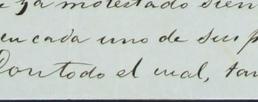 ya molestado sien
en cada uno de sus p
Con todo el cual, tan